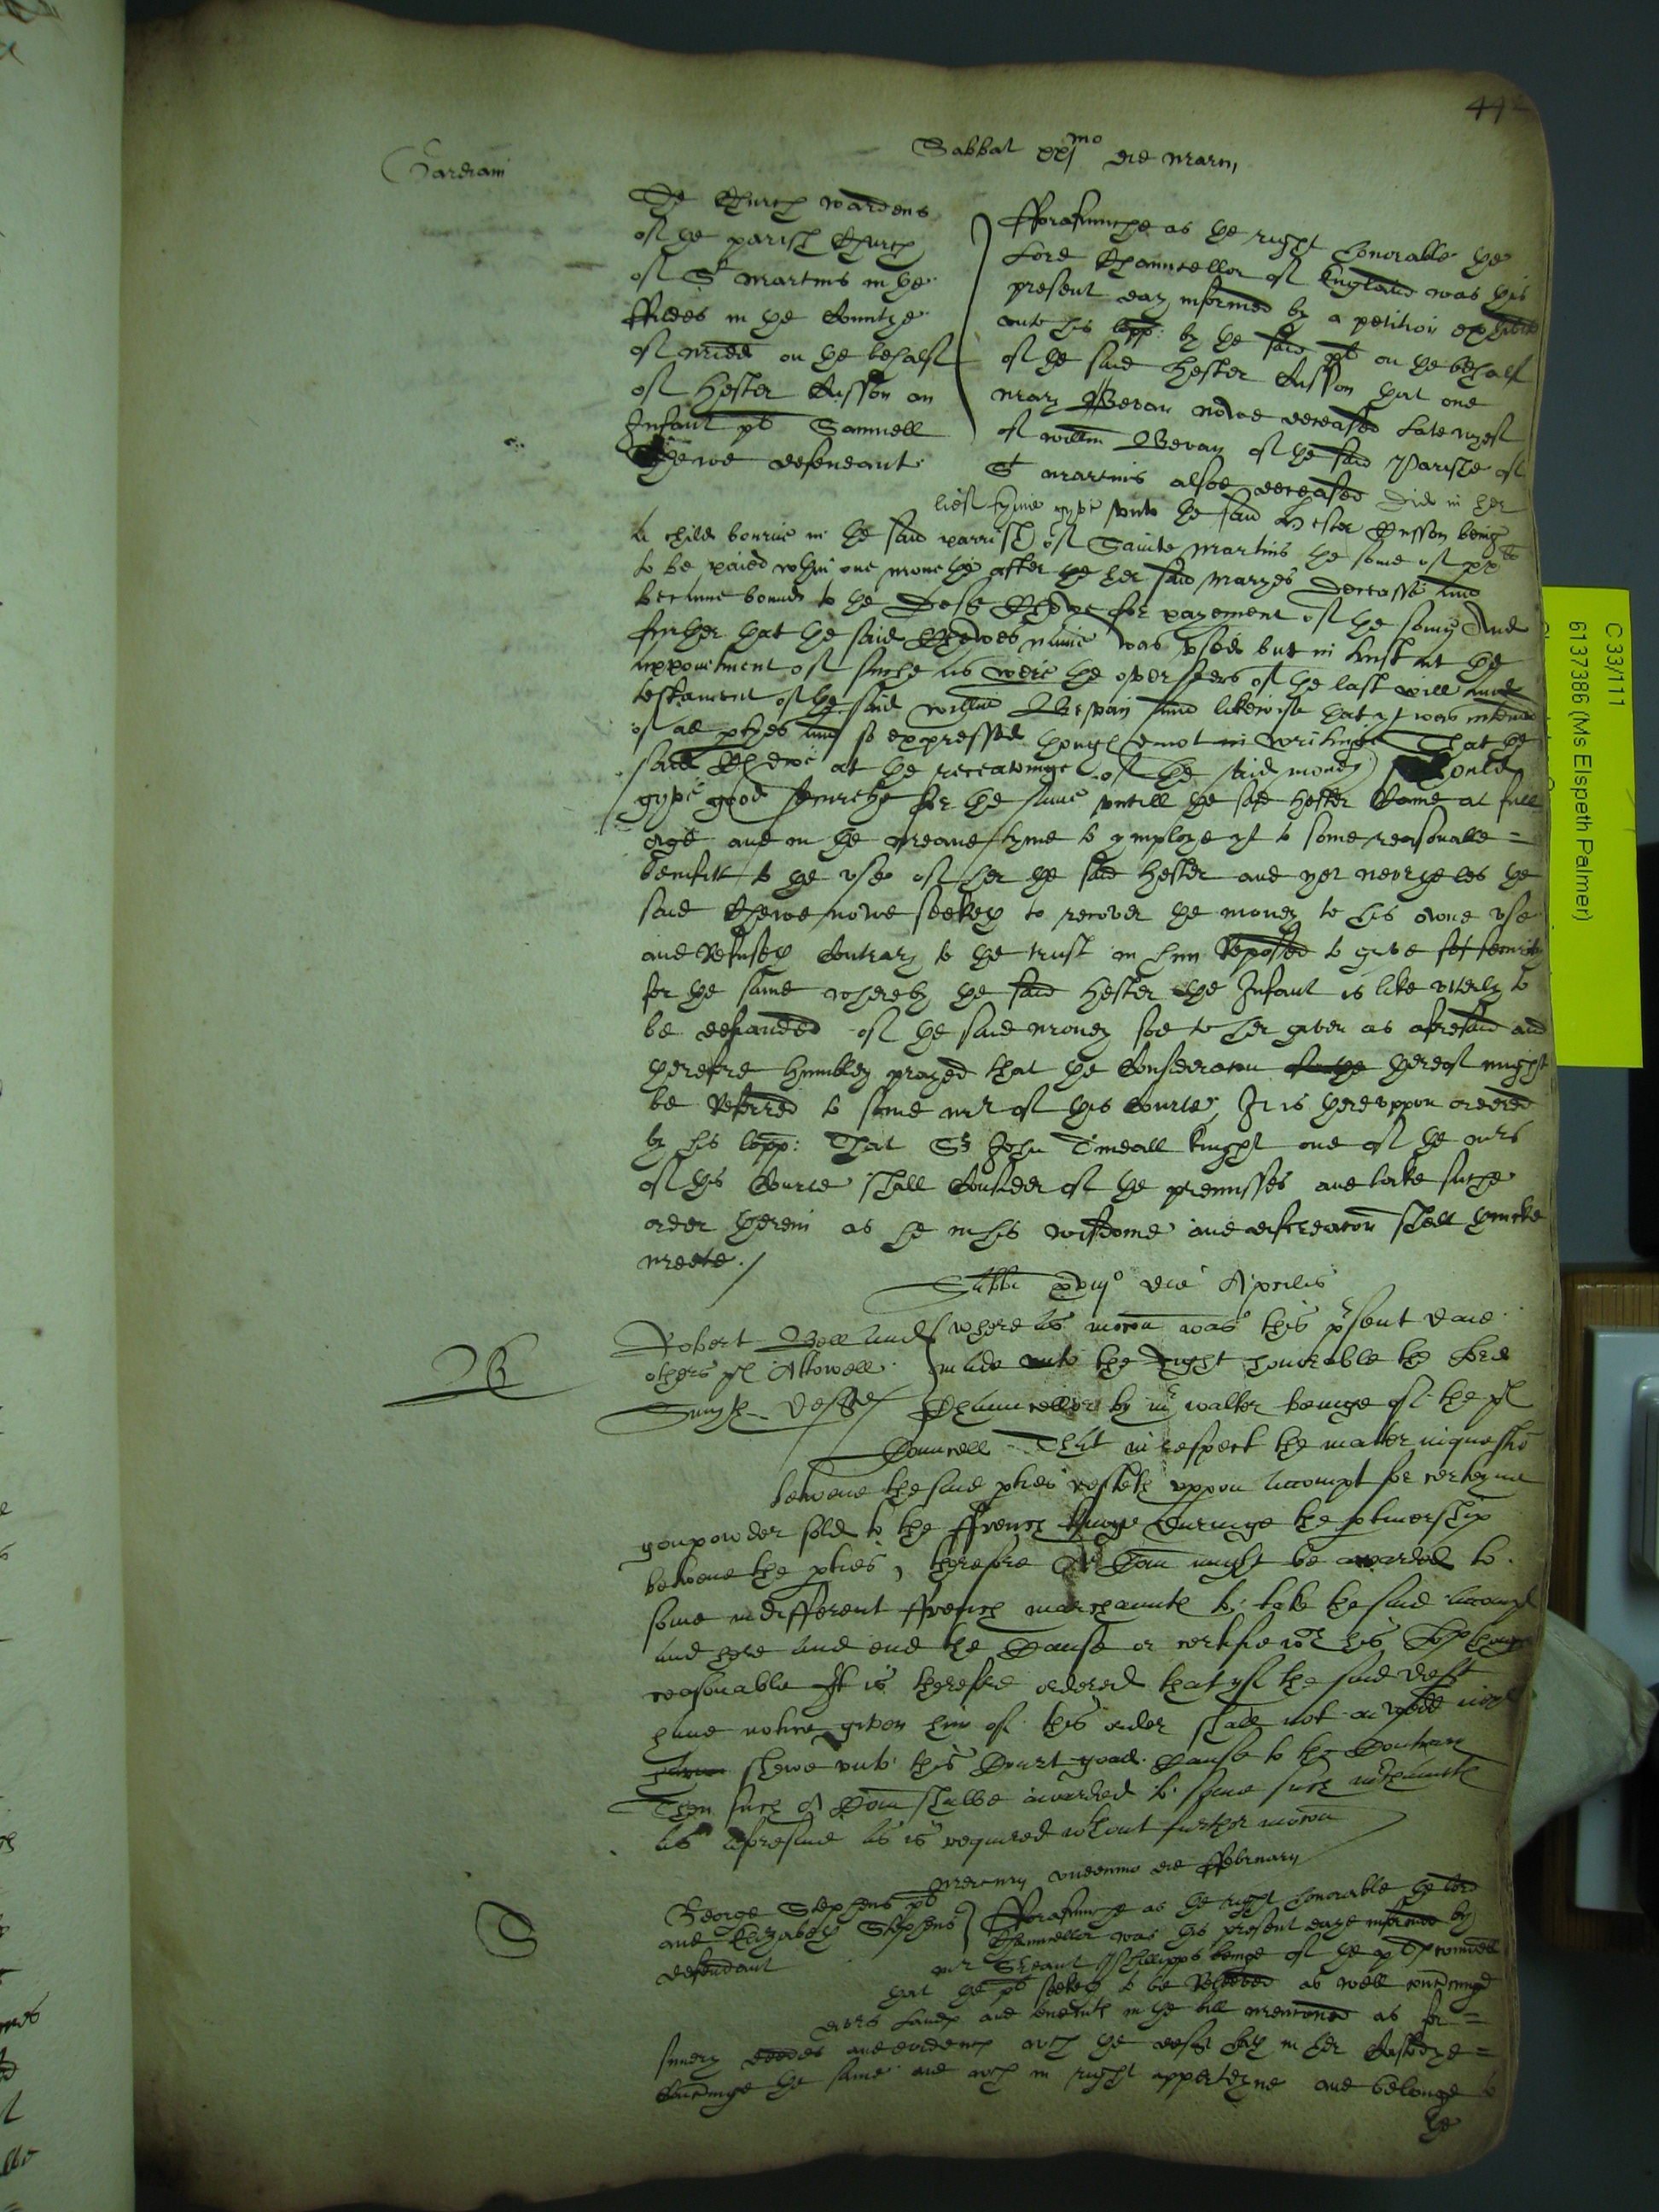 442
Sabbat xxjmo die Marcij
Gardiani
The Church wardens
of the parish Church
of St Martins in the
ffildes in the Countye
of Midd on the behalf
of Hester Cusson an
Infant pls Samuell
Chewe defendant
fforasmuche as the right honorable the
Lord Chauncellor of England was this
present day informed by a peticion exhibited
unto his lopp: by the said pls on the behalf
of the said Hester Cusson that one
Mary Bevan nowe deceased late wyef
of Willm Bevan of the said Parishe of
St Martins alsoe deceased did in her
lief tyme gyve unto the said Hester Cusson being
a child borne in the said parrish of Sainte Martins the some of xxli
to be paied wthin one monethe after the her said Maryes deceasse and
became bound to the deft Chewe for payement of the same And
further that the said Chewes name was used but in trust at the
appointment of suche as were the overseers of the last will and
testament of the said Willm Bevan and likewise that yt was intended
of all ptyes and so expressed though not in writinge That the
said Chewe at the receavinge of the said money should
gyve good securitye for the same untill the said Hester Came at full
age and in the meane tyme to ymploye yt to some reasonable =
benefitt to the use of her the said Hester and yet nevertheles the
said Chewe nowe seeketh to recover the money to his owne use
and Refuseth Contrary to the trust in him Reposed to give securitye
for the same whereby the said Hester the Infant is like utterly to
be defrauded of the said money soe to her given as aforesaid and
therefore humbley prayed that the Consideracon thereof might
be Referred to some mr of this Courte, It is thereuppon ordered
by his lopp: That Sr John Tindall knight one of the mrs
of this Courte shall Consider of the premisses and take suche
order therein as he in his wisdome and discreacon shall thincke
meete./
Sabbi xviijo die Aprilis
B
Robert Bell and
others pl Attowell
Smyth defte
Where as mocon was this psent daie
made unto the Right honorable the Lord
Chauncellor by mr Walter beinge of the pl
Councell That in respect the matter in question
betwene the said pties resteth uppon Accompt for certeyne
gonpowder sold to the ffrench kinge duringe the ptnershipp
betwene the pties, therefore A Com might be awarded to
some indifferent ffrench marchaunts to take the said Accompt
and heere and end the Cause or certifie wch his Lopp thought
reasonable It is therefore ordered that yf the said deft
have notice given him of this order shall not
shewe unto this Court good Cause to the Contrary
Then such A Com shalbe awarded to some such mrchaunts
As aforesaid as is required wthout further mocon
Mercurij undecimo die ffebruarij
S
George Stephens pls
and Elizabeth Stephens
defendant
fforasmuche as the right honorable the lord
Chauncellor was this present daye informed by
mr Sreant Phillipps beinge of the pls councell
that the pls seeketh to be Releeved as well concerninge
divrs Lands and tenemts in the bill mencioned as for =
sundry deedes and evidences wch the deft hath in her Custodye =
Concerninge the same and wch in right apperteyne and belonge to
the
C 33/111
6137386 (Ms Elspeth Palmer)